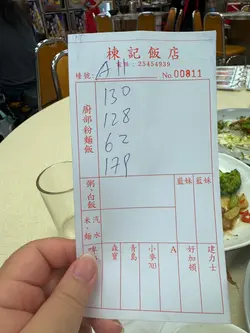 棟記飯店
電話：25456939
檯號：A11
No.00811
廚部粉麵飯
130
128
62
179
藍妹
藍妹
粥、白飯
汽水
森寶
青島
小麥703
A
好加頓
建力士